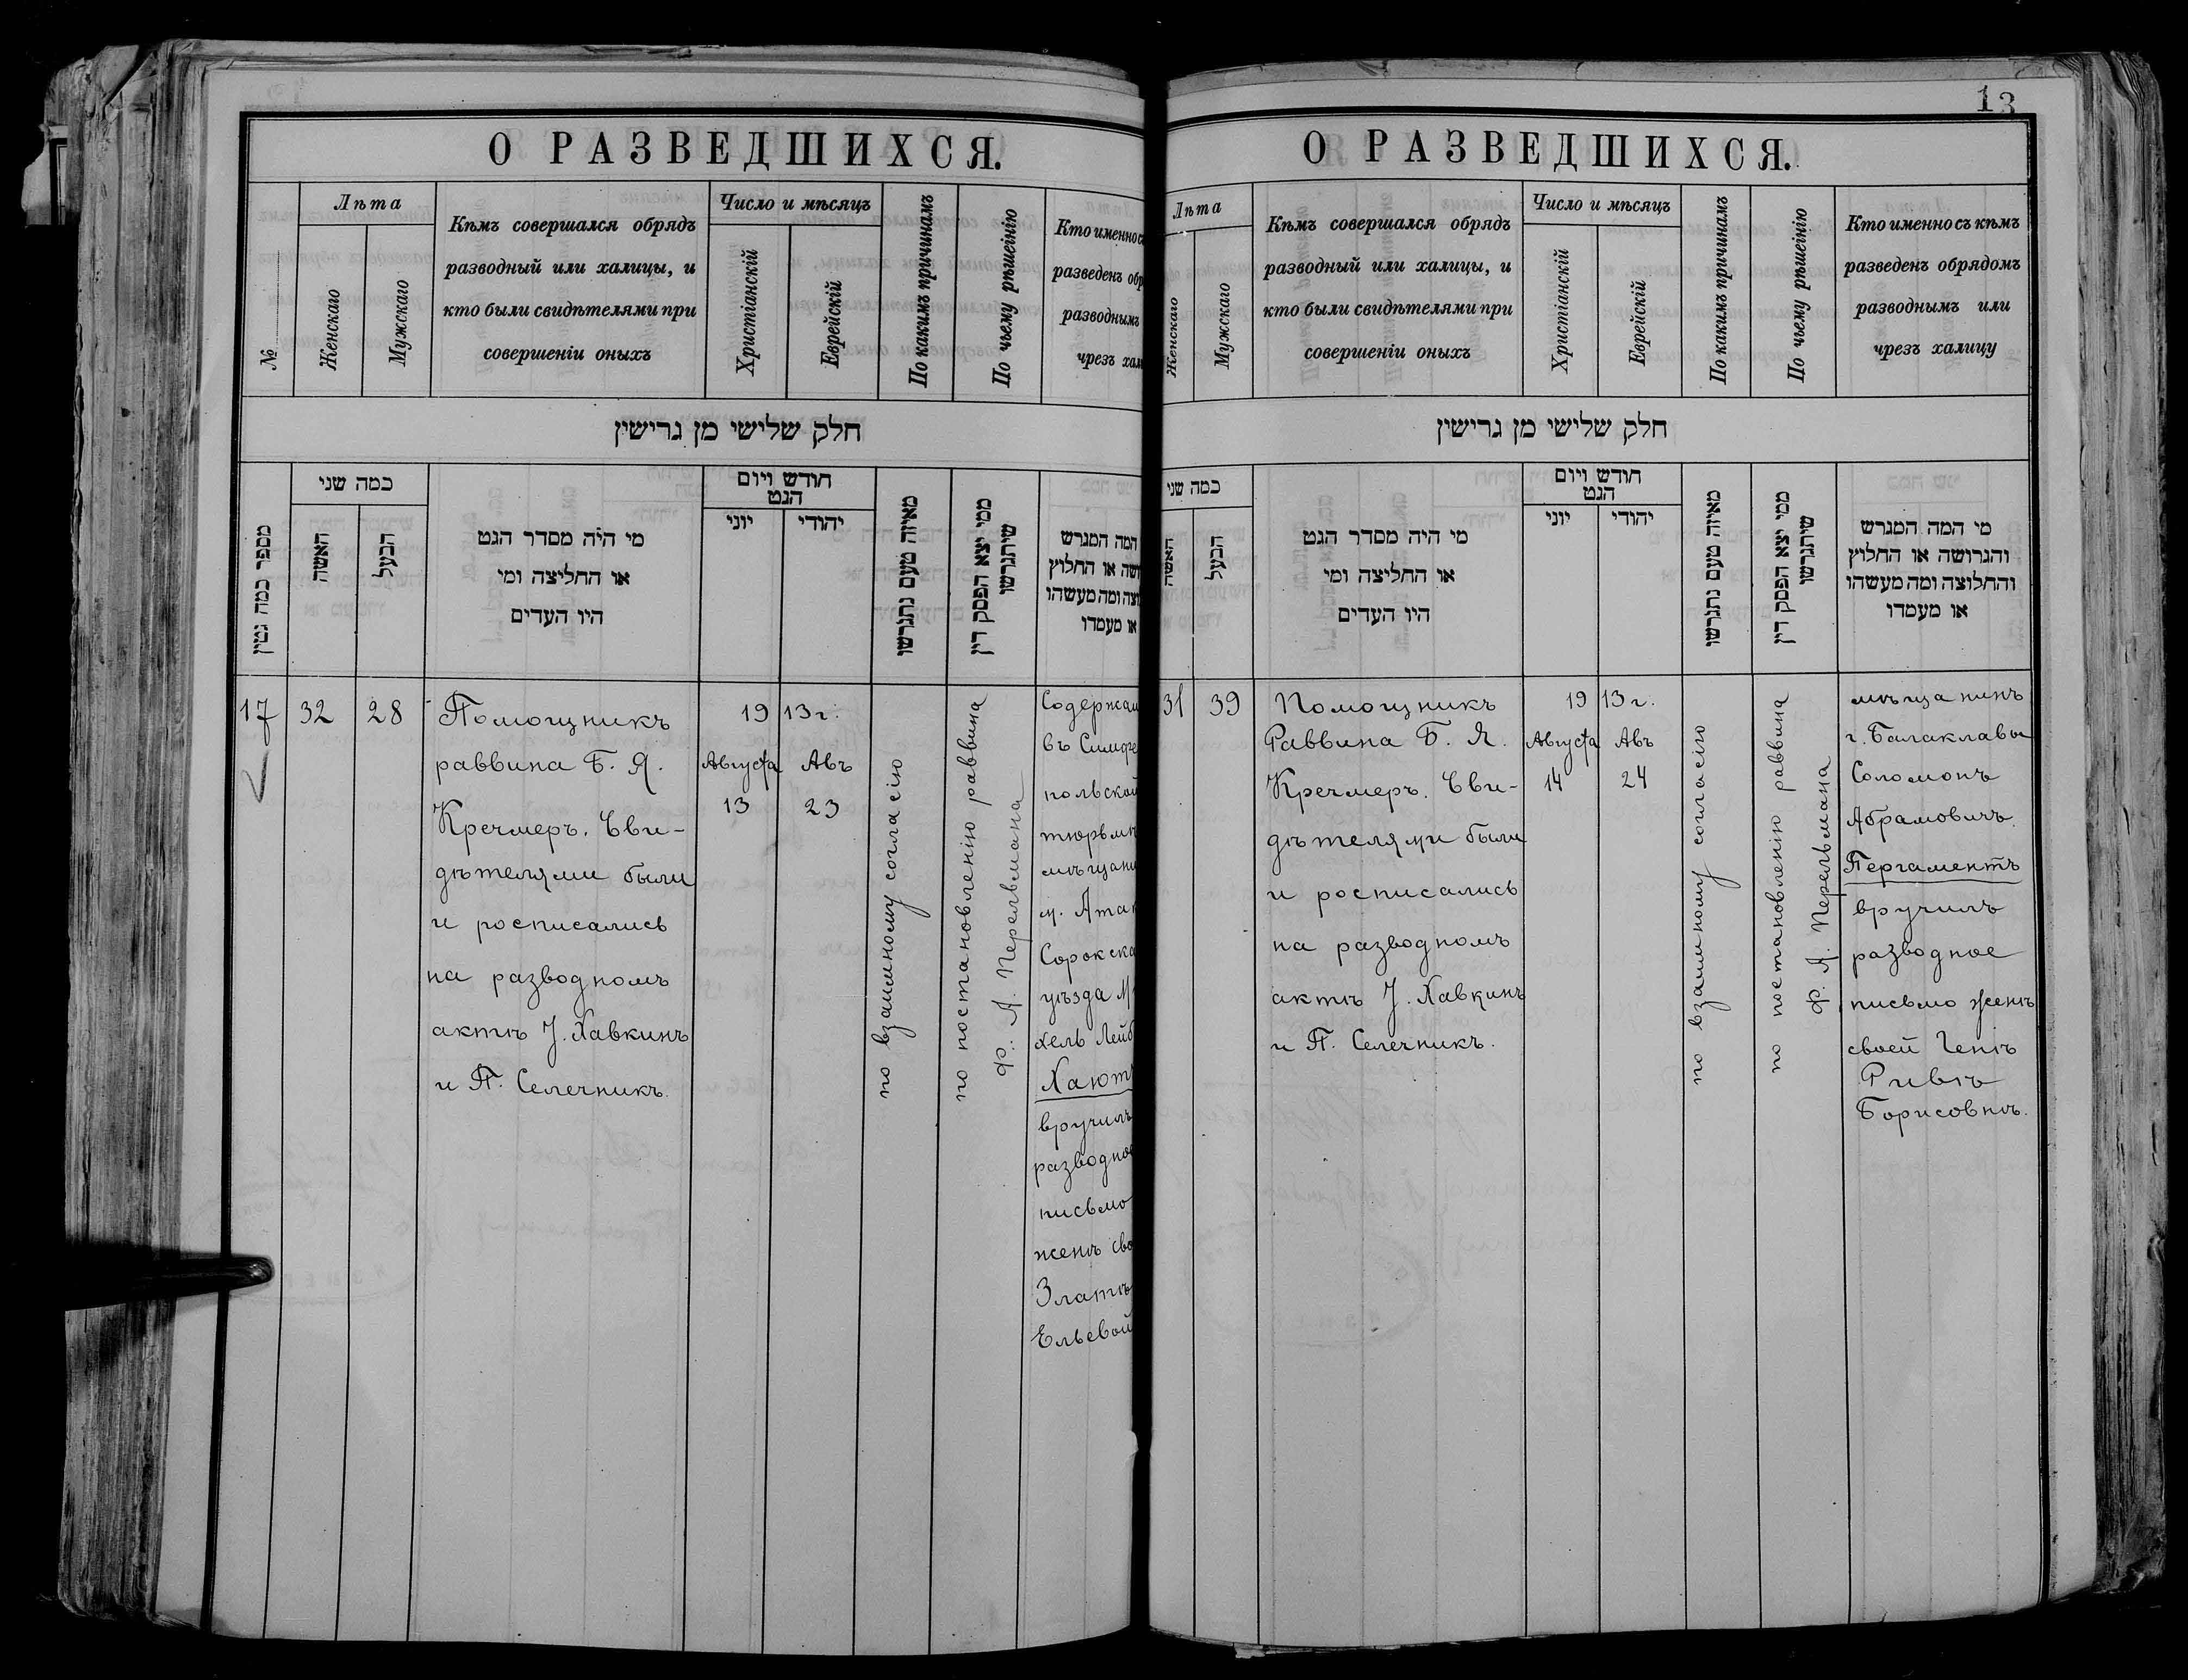 О РАЗВЕДШИХСЯ.
№
Лѣта
Женскаго
Мужскаго
Кѣмъ совершался обрядъ
разводный или халицы, и
кто были свидѣтелями при
совершеніи оныхъ
Число и мѣсяцъ
Христіанскій
Еврейскій
По какимъ причинамъ
По чьему рѣшеінію
Кто именно с
разведенъ обр
разводнымъ
чрезъ хал
חלק שלישי מן גרישין
מספר כמה גטין
כמה שני
האשה
הבעל
מי היה מסדר הגט
או החליצה ומי
היו העדים
חודש ויום
הגט
יוני
יהודי
מאיזה טעם נתגרשו
ממי יצא הפסק דין
שיתגרשו
המה המגרש
ושה או החלוץ
וצה ומה מעשהו
או מעמדו
17
32
28
Помощникъ
раввина Б. Я.
Кречмеръ. Сви-
дѣтелями были
и росписались
на разводномъ
актѣ У. Хавкинъ
и П. Селечникъ.
1913 г.
Августа
13
Авъ
23
по взаимному согласію
по постановленію раввина
Ф. Я. Перельмана
Содержащ
въ Симфе
польской
тюрьмѣ
мѣщани
м. Атак
Сорокска
уѣзда Ми
хель Лейб
Хаютъ
вручилъ
разводное
письмо
женѣ сво
Златѣ
Ельевой
13
О РАЗВЕДШИХСЯ.
Лѣта
Женскаго
Мужскаго
Кѣмъ совершался обрядъ
разводный или халицы, и
кто были свидѣтелями при
совершеніи оныхъ
Число и мѣсяцъ
Христіанскій
Еврейскій
По какимъ причинамъ
По чьему рѣшеінію
Кто именно съ кѣмъ
разведенъ обрядомъ
разводнымъ или
чрезъ халицу
חלק שלישי מן גרישין
כמה שני
האשה
הבעל
מי היה מסדר הגט
או החליצה ומי
היו העדים
חודש ויום
הגט
יוני
יהודי
מאיזה טעם נתגרשו
ממי יצא הפסק דין
שיתגרשו
מי המה המגרש
והגרושה או החלוץ
והחלוצה ומה מעשהו
או מעמדו
31
39
Помощникъ
Раввина Б. Я.
Кречмеръ. Сви-
дѣтелями были
и росписались
на разводномъ
актѣ У. Хавкинъ
и П. Селечникъ.
1913 г.
Августа
14
Авъ
24
по взаимному согласію
по постановленію раввина
Ф. Я. Перельмана
мѣщанинъ
г. Балаклавы
Соломонъ
Абрамовичъ
Пергаментъ
вручилъ
разводное
письмо женѣ
своей Генѣ
Ривѣ
Борисовнѣ.